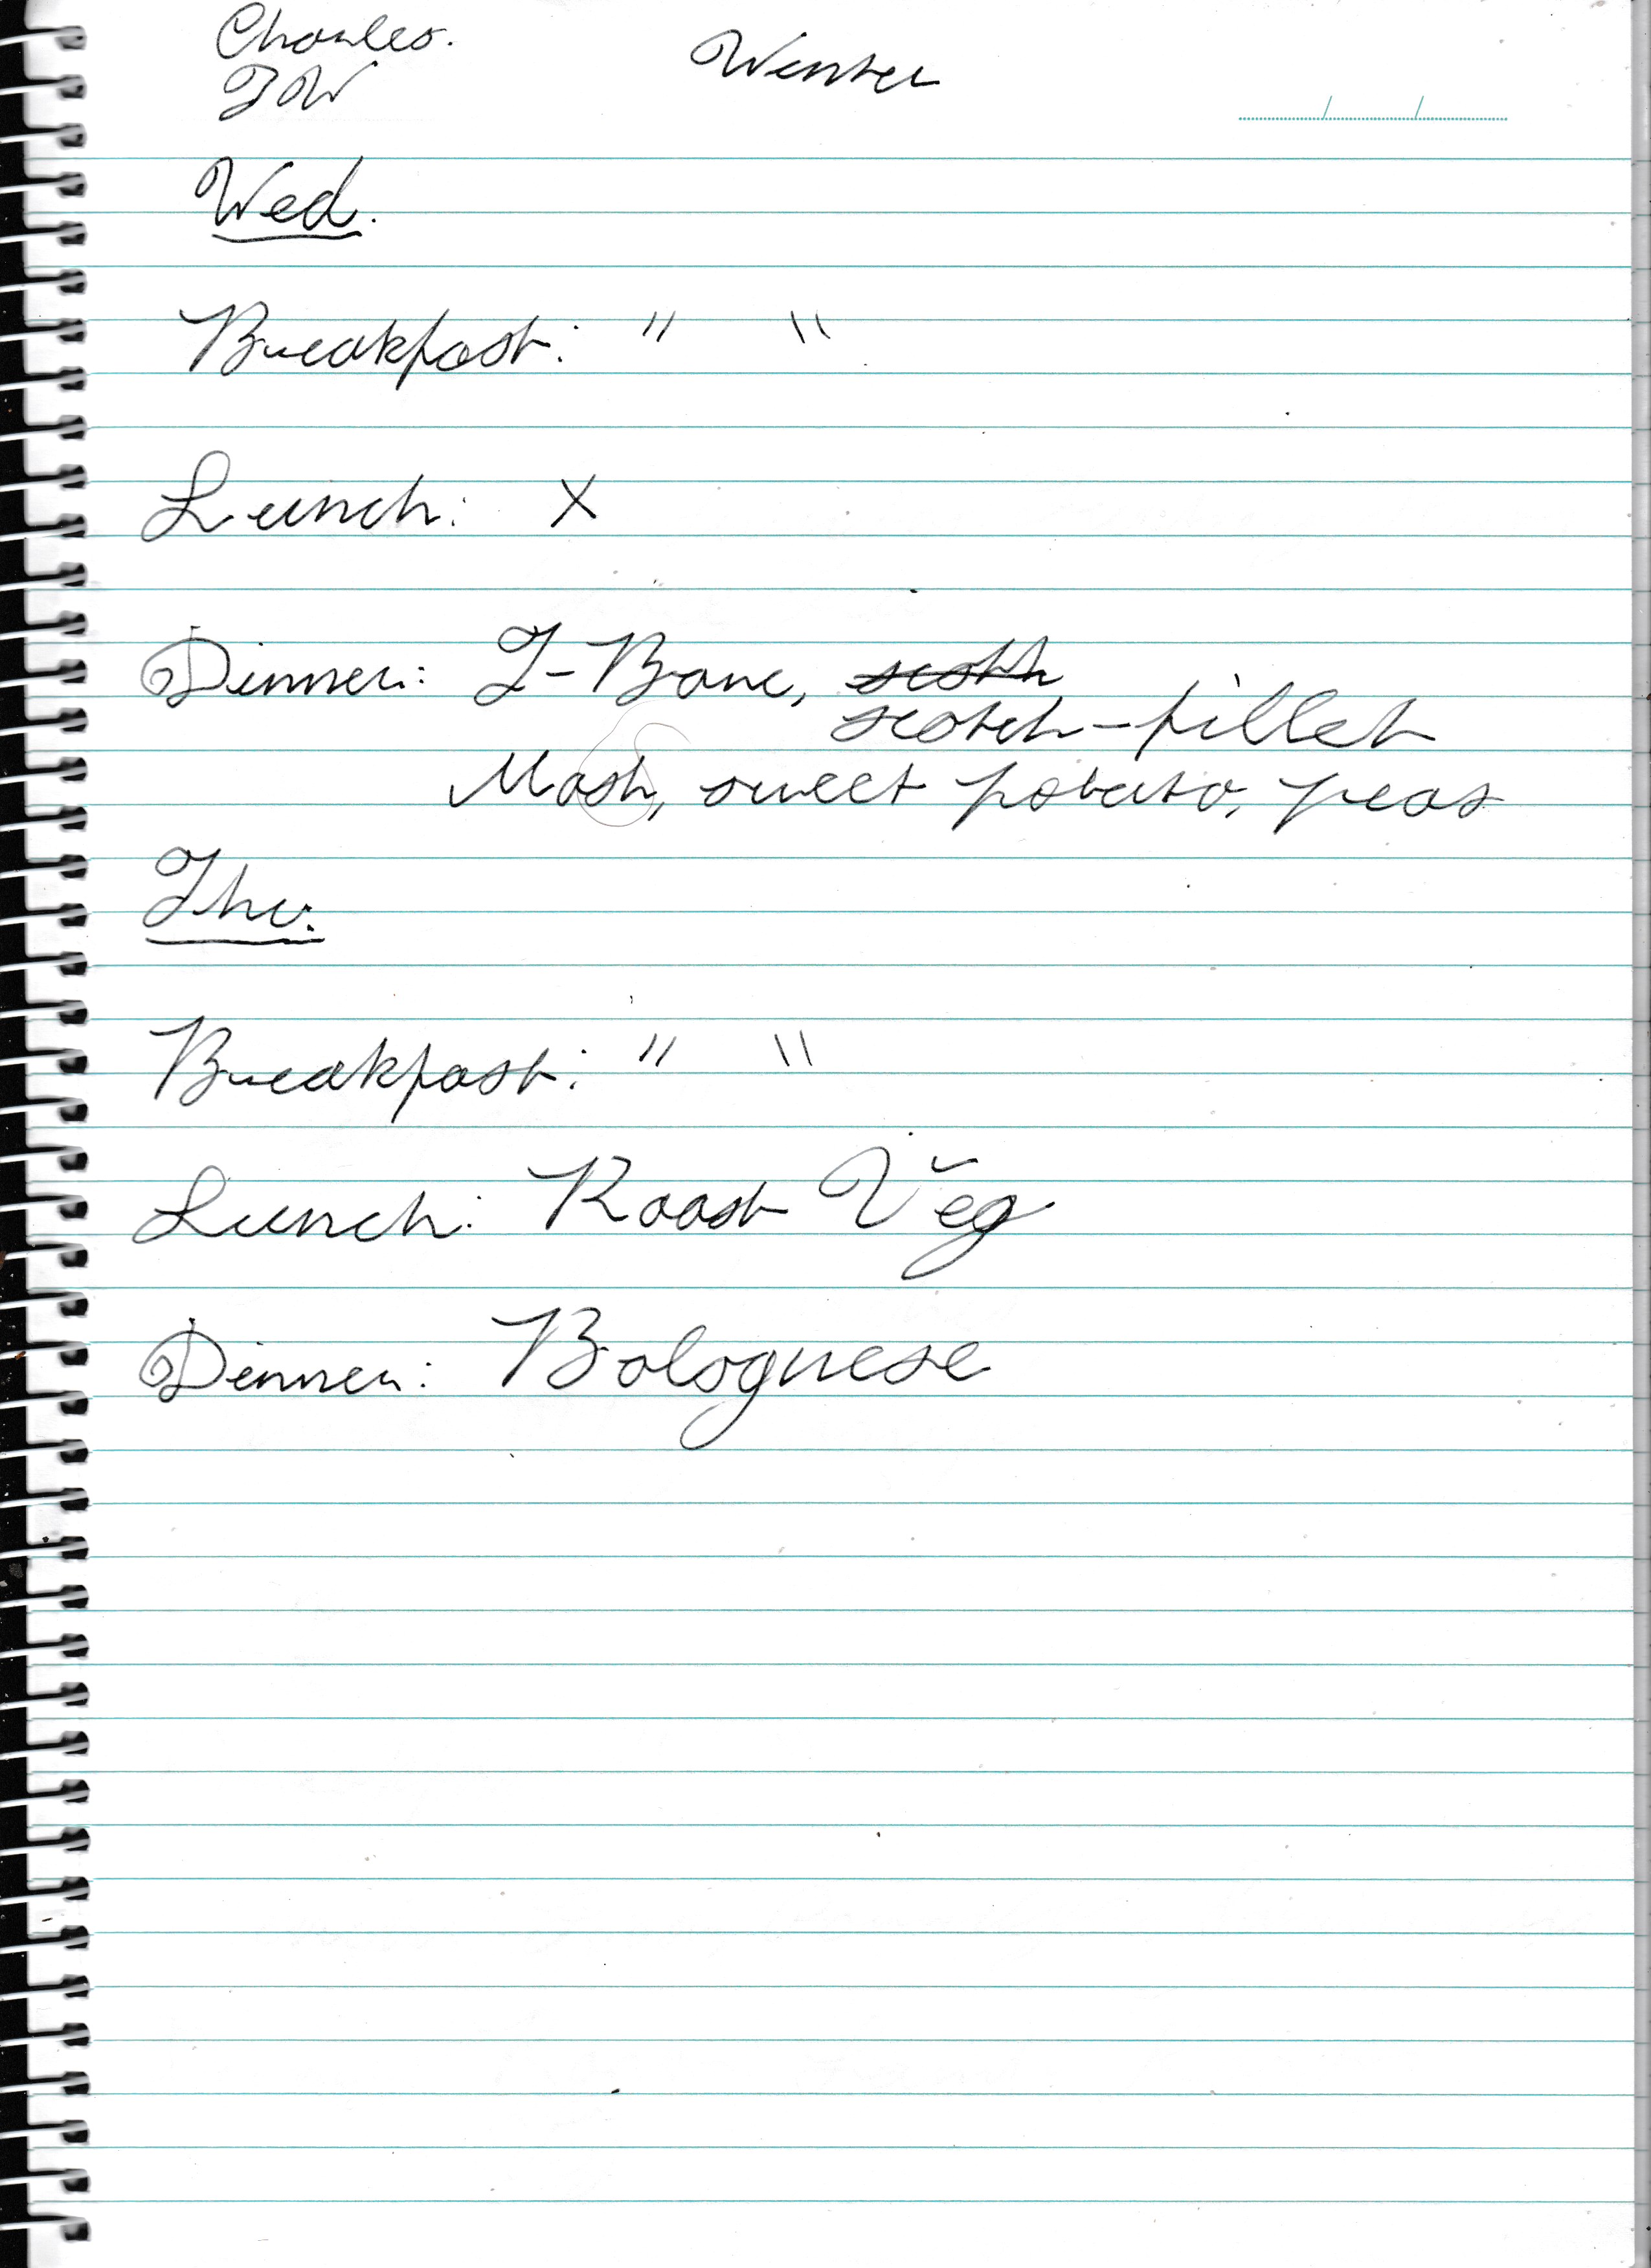 Charles.
TW
Winter
Wed.
Breakfast: " "
Lunch: X
Dinner: T-Bone, scotch
scotch-fillet
Mash, sweet potato, peas
Thu.
Breakfast: " "
Lunch: Roast Veg
Dinner: Bolognese